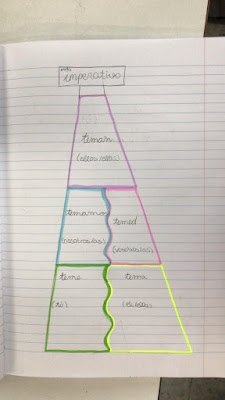 imperativo
teman
(ellos, ellas)
temamos
temed
(nosotros/as)
(vosotros/as)
teme
tema
(tú)